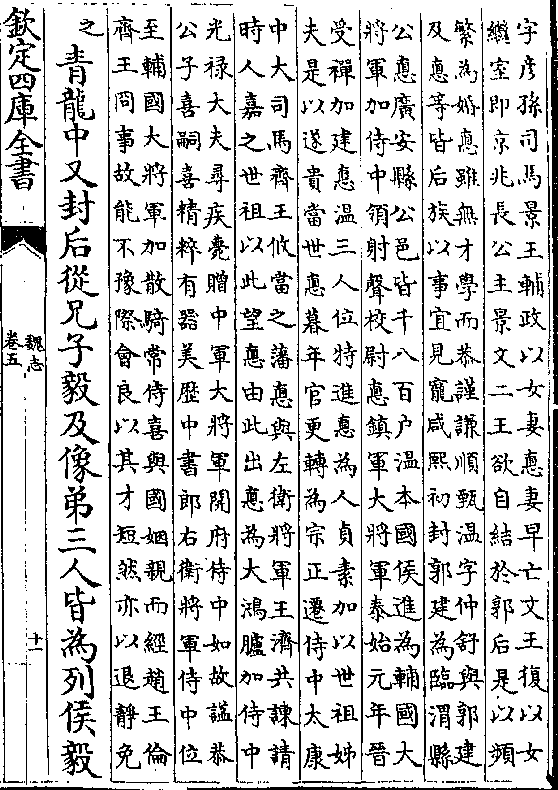 字彦孫司馬景王輔政以女妻悳妻早亡文王復以女
繼室即京兆長公主景文二王欲自結於郭后是以頻
繁為婚悳雖無才學而恭謹謙順甄温字仲舒與郭建
及悳等皆后族以事宜見寵咸熙初封郭建為臨渭縣
公悳廣安縣公邑皆千八百户温本國侯進為輔國大
將軍加侍中領射聲校尉悳鎮軍大將軍泰始元年晉
受禪加建悳温三人位特進悳為人貞素加以世祖姊
夫是以遂貴當世悳暮年官更轉為宗正遷侍中太康
中大司馬齊王攸當之藩悳與左衛將軍王濟共諫請
時人嘉之世祖以此望悳由此出悳為大鴻臚加侍中
光禄大夫尋疾薨贈中軍大將軍開府侍中如故諡恭
公子喜嗣喜精粹有器美歴中書郎右衛將軍侍中位
至輔國大將軍加散騎常侍喜與國姻親而經趙王倫
齊王冏事故能不豫際會良以其才短然亦以退靜免
之
青龍中又封后從兄子毅及像弟三人皆為列侯毅
欽定四庫全書
魏志
卷五
十一